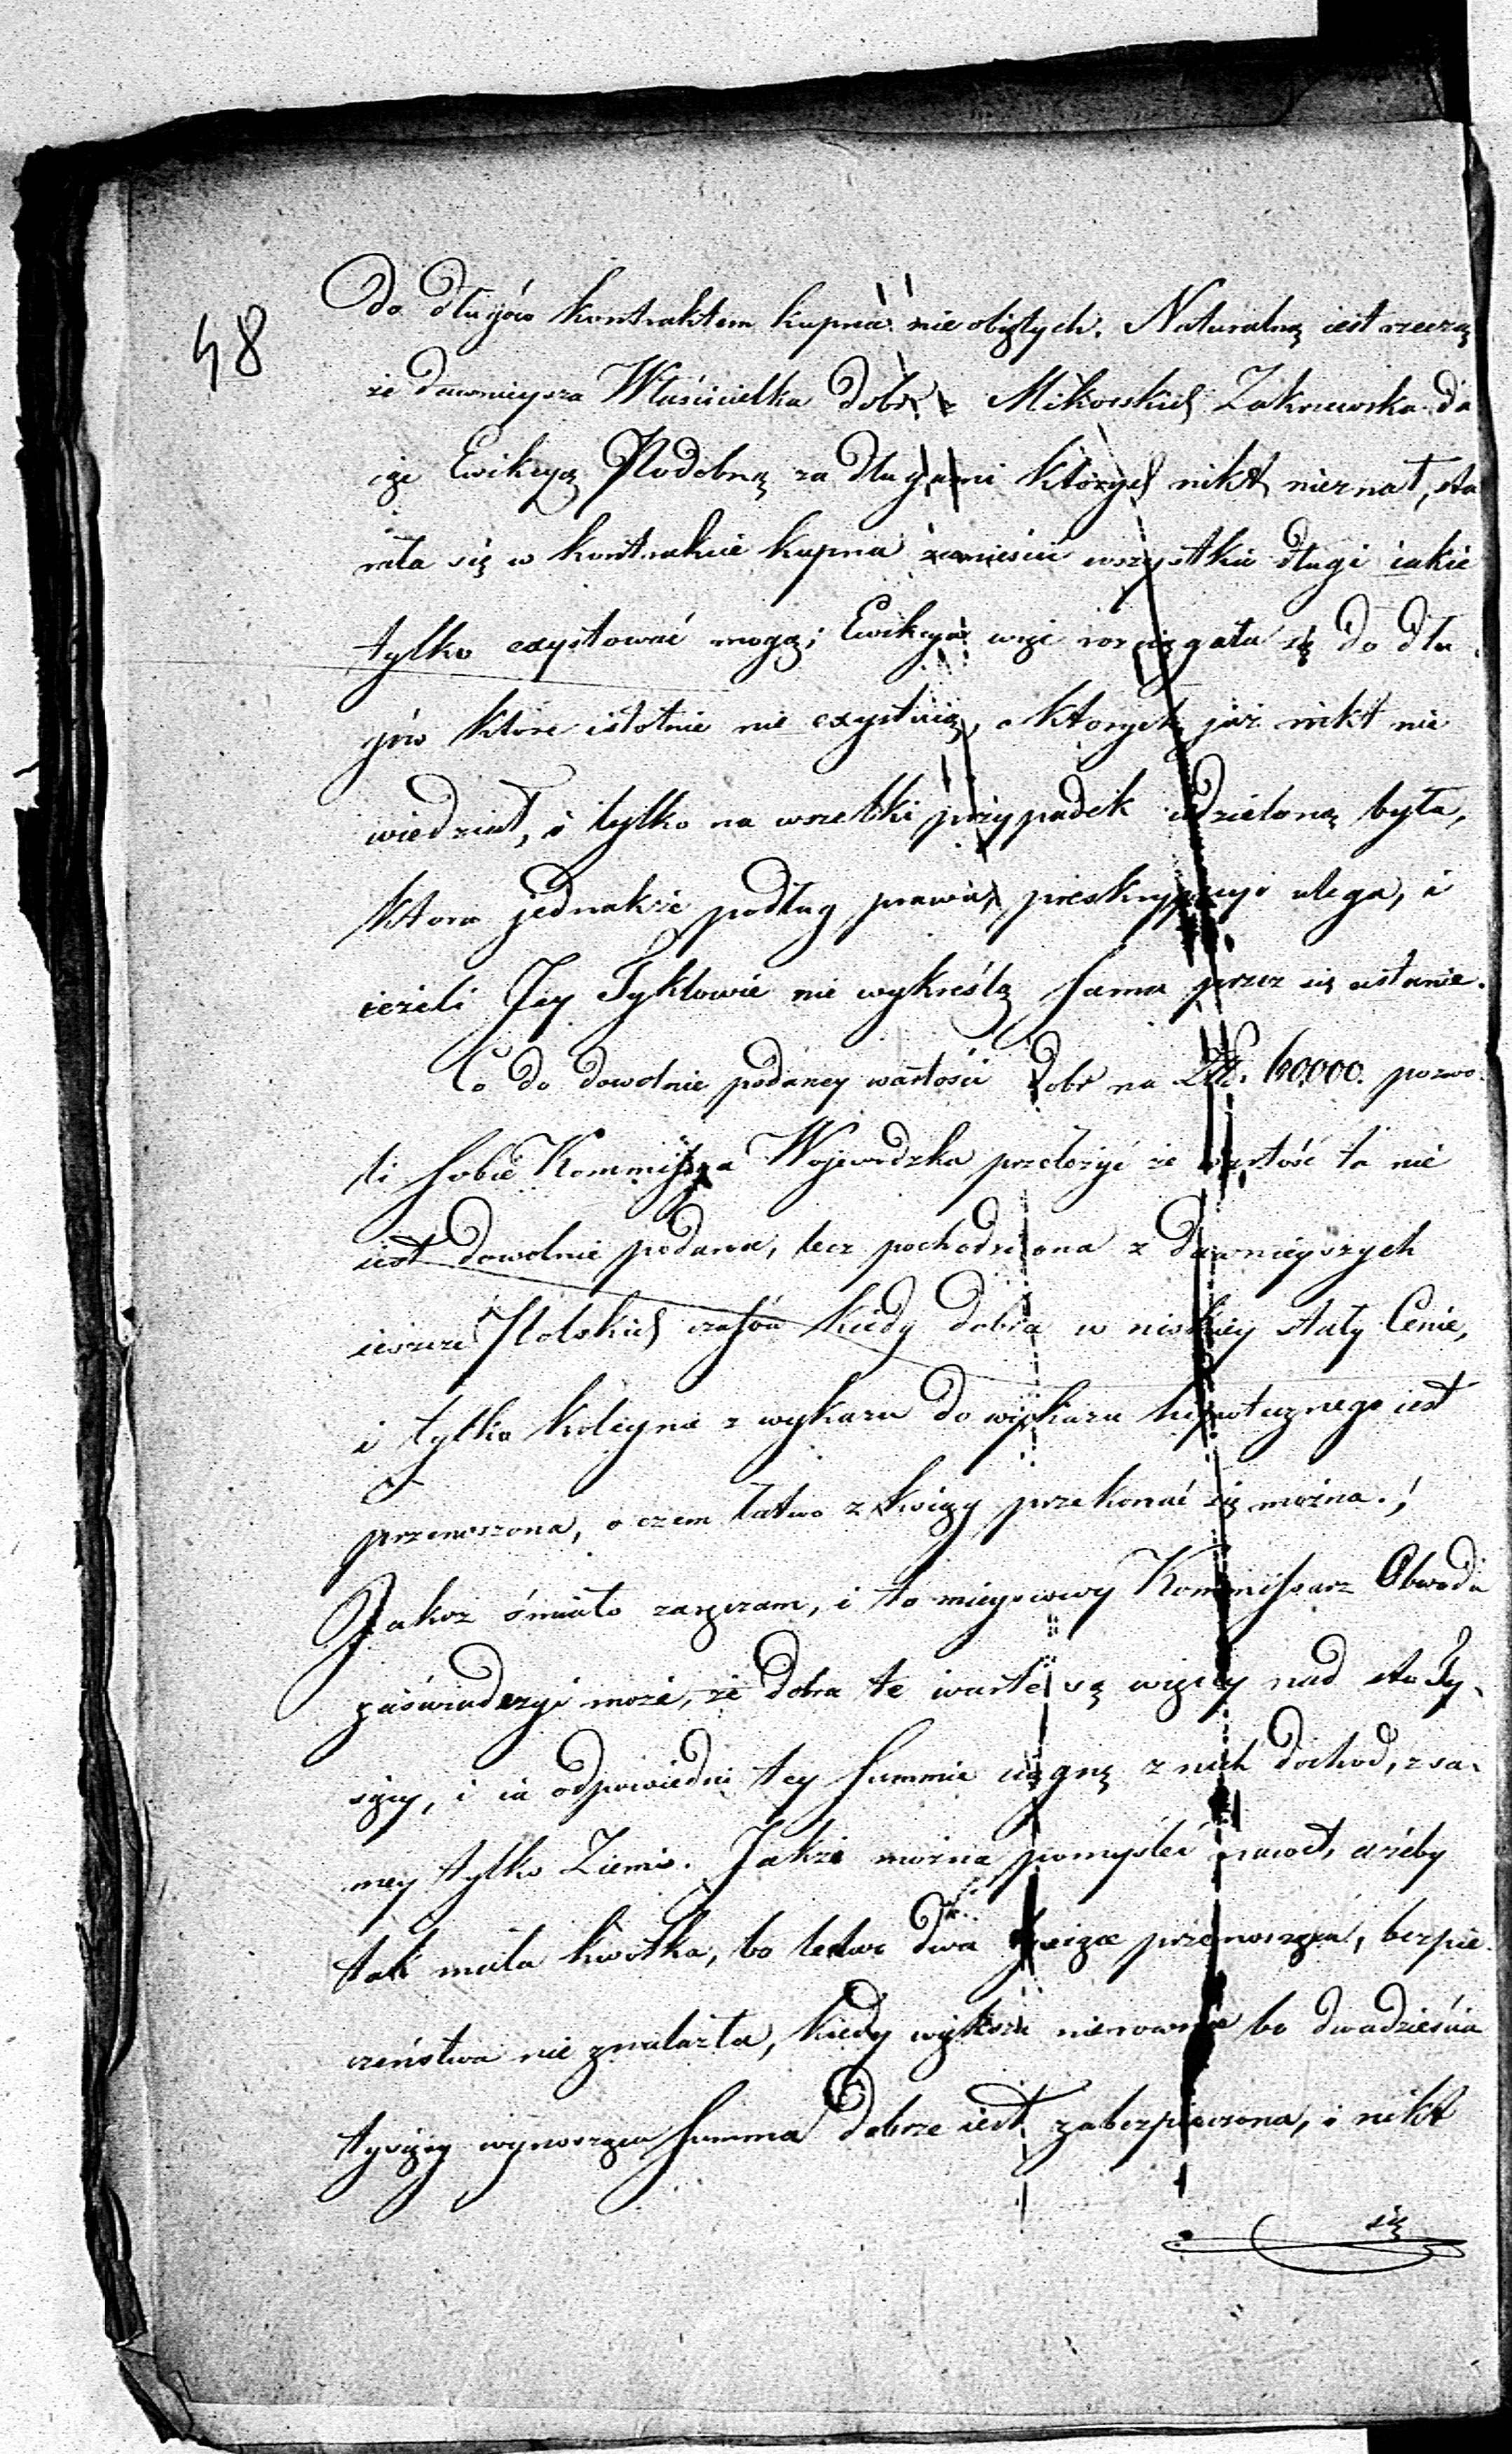 48
Do długów kontraktem kupna nie objętych. Naturalną iest rzeczą
że dawnieysza Właścicielka dobr z Mikorskich Zakrzewska da
iąc Ewikcyą Podobną za długami których nikt nieznał, sta
rała się w kontrakcie kupna zamieścić wszystkie długi iakie
tylko exystować mogą; Ewikcya więc rosciągała się do dłu
gów które istotnie nie exystuią, o ktorych już nikt nie
wiedział, i tylko na wszelki przypadek udzieloną była,
ktora jednakże podług prawa, preskrypcyi ulega, i
ieżeli Jey Tyktowie nie wykreślą sama przez się ustanie.
Co do dowolnie podaney wartości dobr na Złt. 60,000. pozwo
li sobie Kommissya Wojewodzka przełożyć że wartość ta nie
iest dowolnie podana, lecz pochodzi ona z dawnieyszych
ieszcze Polskich czasów kiedy dobra w niskiey stały Cenie,
i tylko koleyno z wykazu do wykazu hypotecznego iest
przenoszona, o czem łatwo z księgi przekonać się można.;
Jakoż śmiało zaręczam, i to mieyscowy Kommissarz Obwodu
zaświadczyć może, że dobra te warte są więcey nad sto Ty-
sięcy, i ia odpowiedni tey summie ciągnę z nich dochod, z sa-
mey tylko Ziemi. Jakże można pomyśleć nawet, ażeby
tak mała kwotka, bo ledwo dwa tysiące przenosząca, bezpie
czeństwa nie znalazła, kiedy większa nierownie bo dwadzieścia
tysięcy wynosząca summa dobrze iest zabezpieczona, i nikt
się